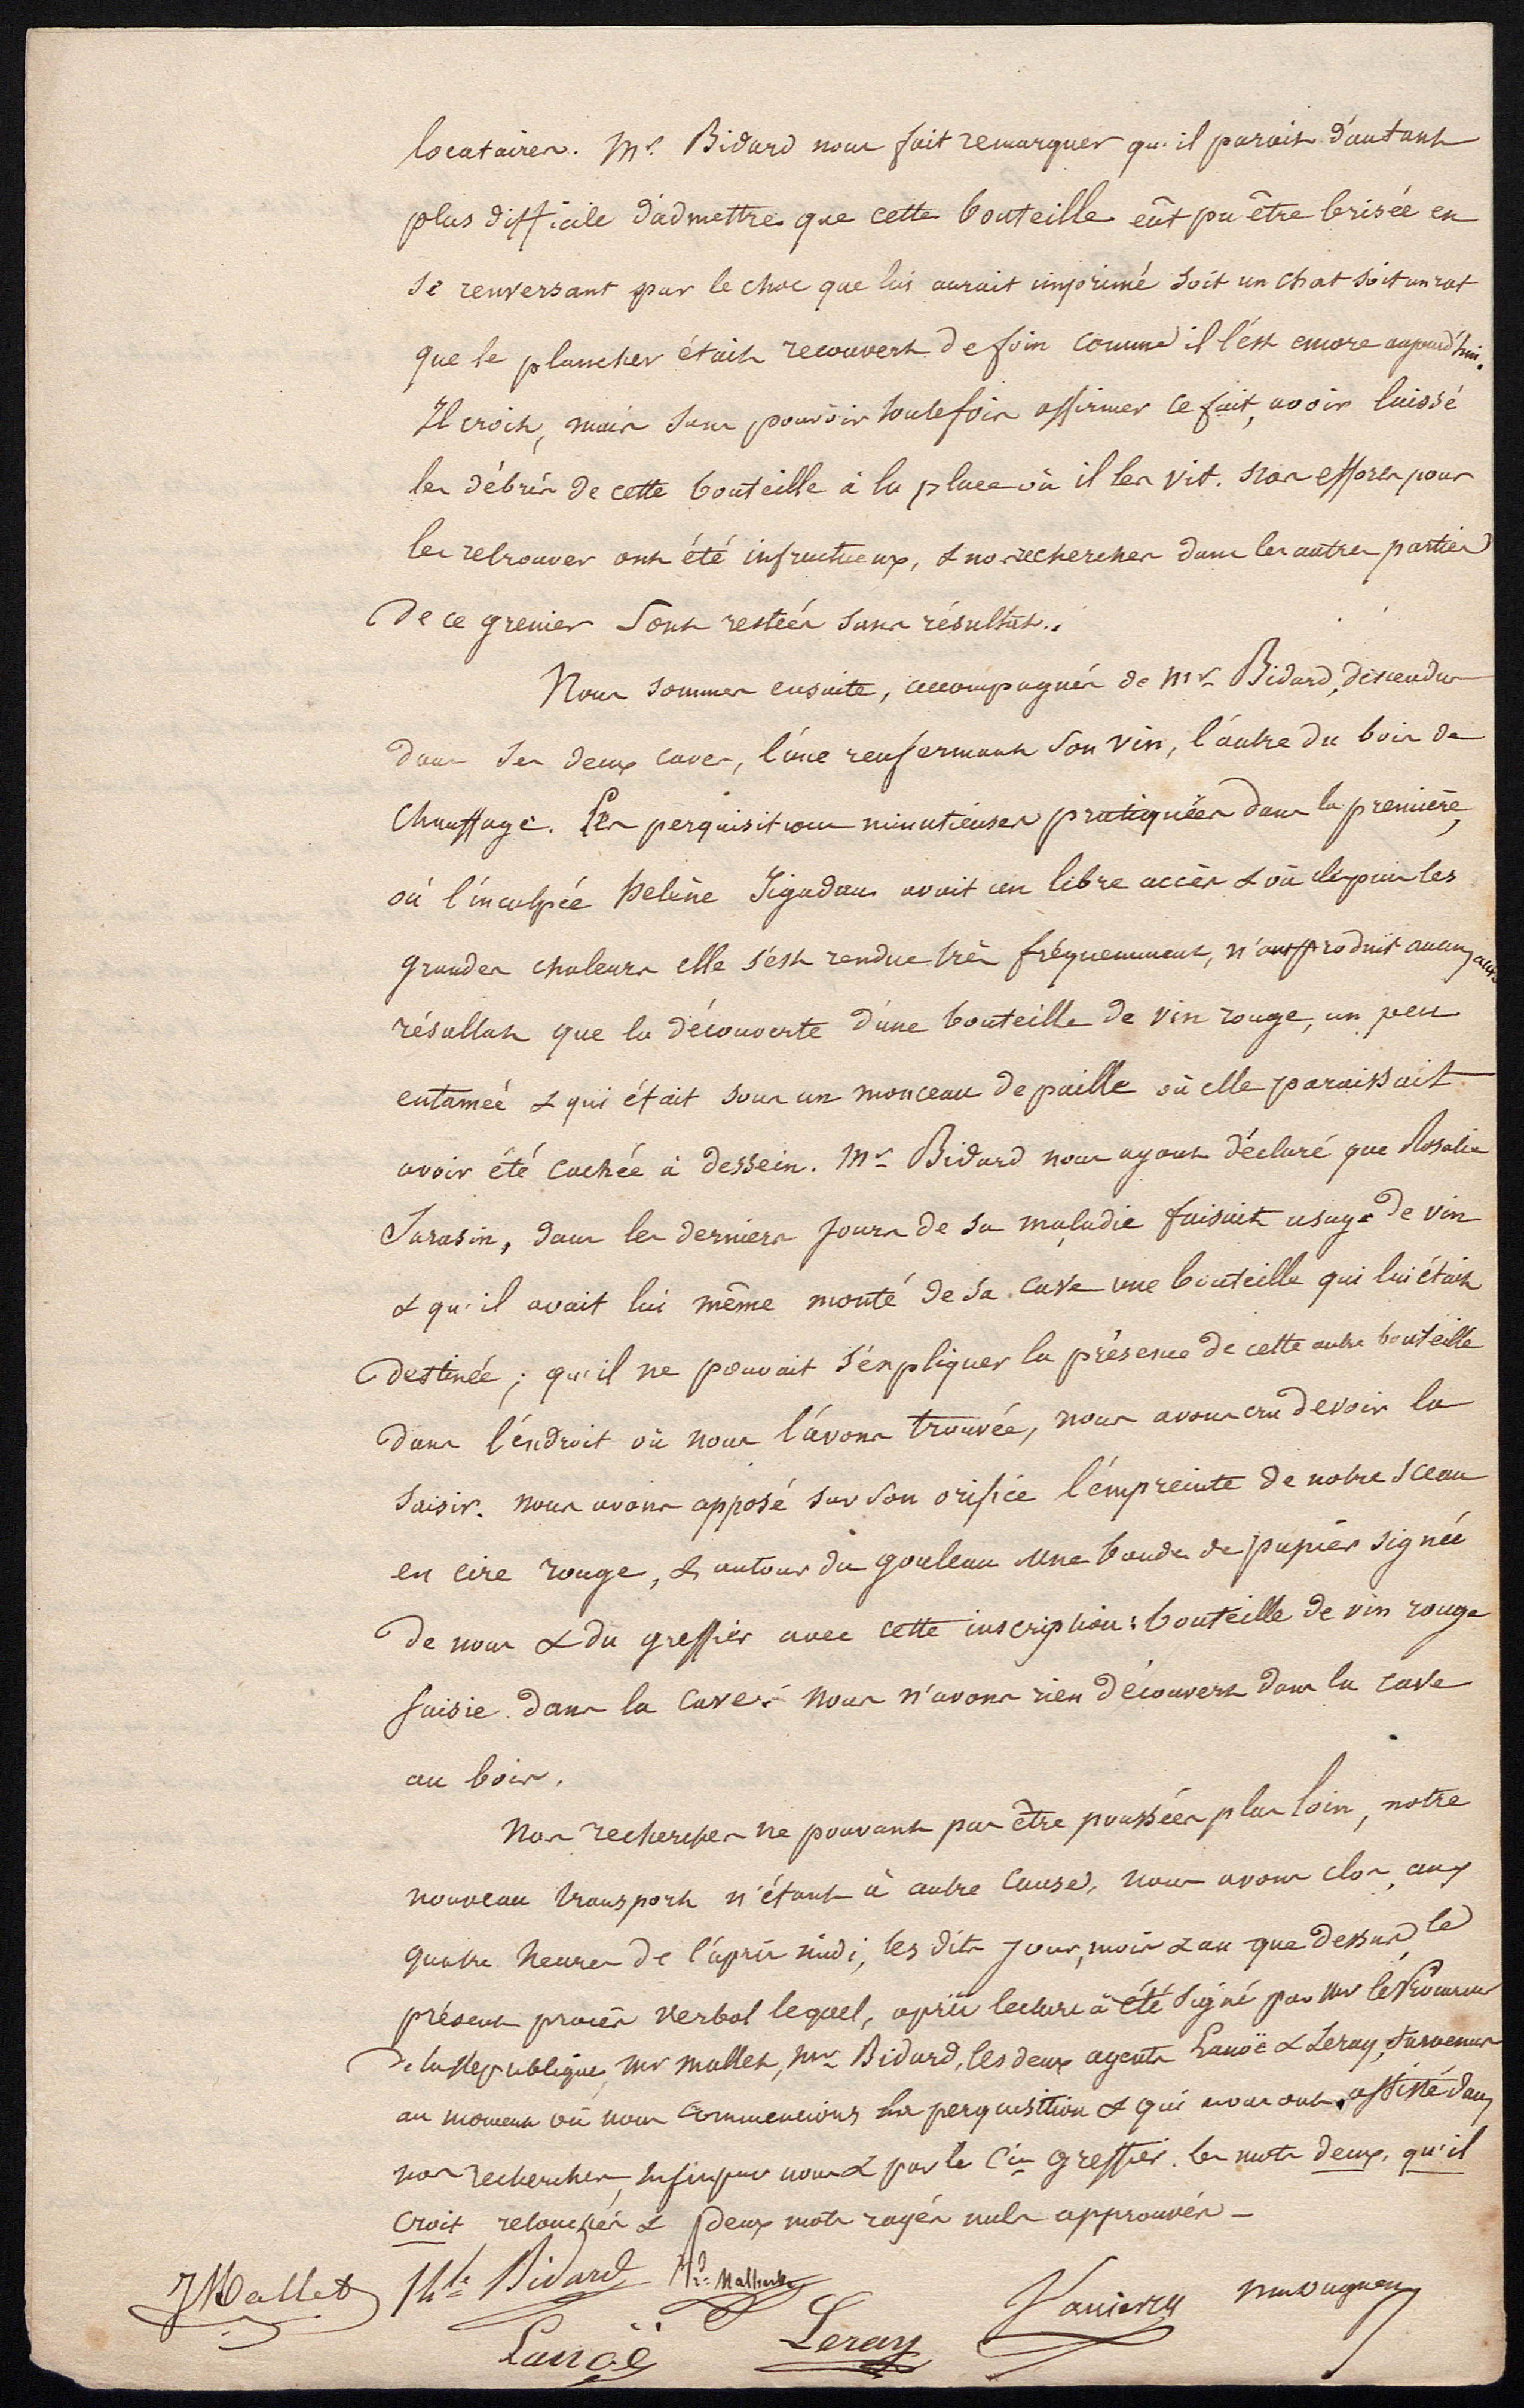 locataires. Mr. Bidard nous fait remarquer qu'il parait d'autant
plus difficile d'admettre que cette bouteille eût pu être brisée en
se renversant par le choc que lui aurait imprimé soit un chat soit un rat
que le plancher était recouvert de foin comme il l'est encore aujourd'hui.
Il croit, mais sans pouvoir toutefois affirmer ce fait, avoir laissé
les débris de cette bouteille à la place où il les vit. Nos efforts pour
les retrouver ont été infructueux, & nos recherches dans les autres parties
de ce grenier sont restées sans résultat.
Nous sommes ensuite, accompagnés de Mr Bidard, descendus
dans ses deux caves, l'une renfermant son vin, l'autre du bois de
chauffage. Les perquisitions minutieuses pratiquées dans la première,
où l'inculpée Hélène Jégadau avait un libre accès & où depuis les
grandes chaleurs elle s'est rendue très fréquemment, n'ont produit aucun autre
résultat que la découverte d'une bouteille de vin rouge, un peu
entamée & qui était sous un monceau de paille où elle paraissait
avoir été cachée à dessein. Mr Bidard nous ayant déclaré que Rosalie
Sarasin, dans les derniers jours de sa maladie faisait usage de vin
& qu'il avait lui même monté de sa cave une bouteille qui lui était
destinée; qu'il ne pouvait s'expliquer la présence de cette autre bouteille
dans l'endroit où nous l'avons trouvée, nous avons cru devoir la
saisir. nous avons apposé sur son orifice l'empreinte de notre sceau
en cire rouge, & autour du gouleau une bande de papier signée
de nous & du greffier avec cette inscription: bouteille de vin rouge
saisie dans la cave. Nous n'avons rien découvert dans la cave
au bois.
Nos recherches ne pouvant pas être poussées plus loin, notre
nouveau transport n'étant à autre cause, nous avons clos, aux
quatre heures de l'après midi, les dits jour, mois & an que dessus, le
présent procès verbal lequel, après lecture a été signé par Mr le Procureur
de la République, Mr Mallet, Mr Bidard, les deux agents Lanoë & Leray, survenus
au moment où nous commencions la perquisition & qui nous ont assisté dans
nos recherches, enfin par nous & par le Cis greffier. les mots deux, qu'il
croit retouchés & deux mots rayés nuls approuvés —
J Mallet Thle Bidard
Lanoë Leray